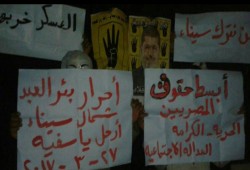 العسكر خربو
لن نترك سيناء
أحرار بئر العبد
شمال سيناء
ارحل ياسفيه
٢٧-٣-٢٠١٧
أبسط حقوق
المصريين
الحرية الكرامه
العدالة الاجتماعية